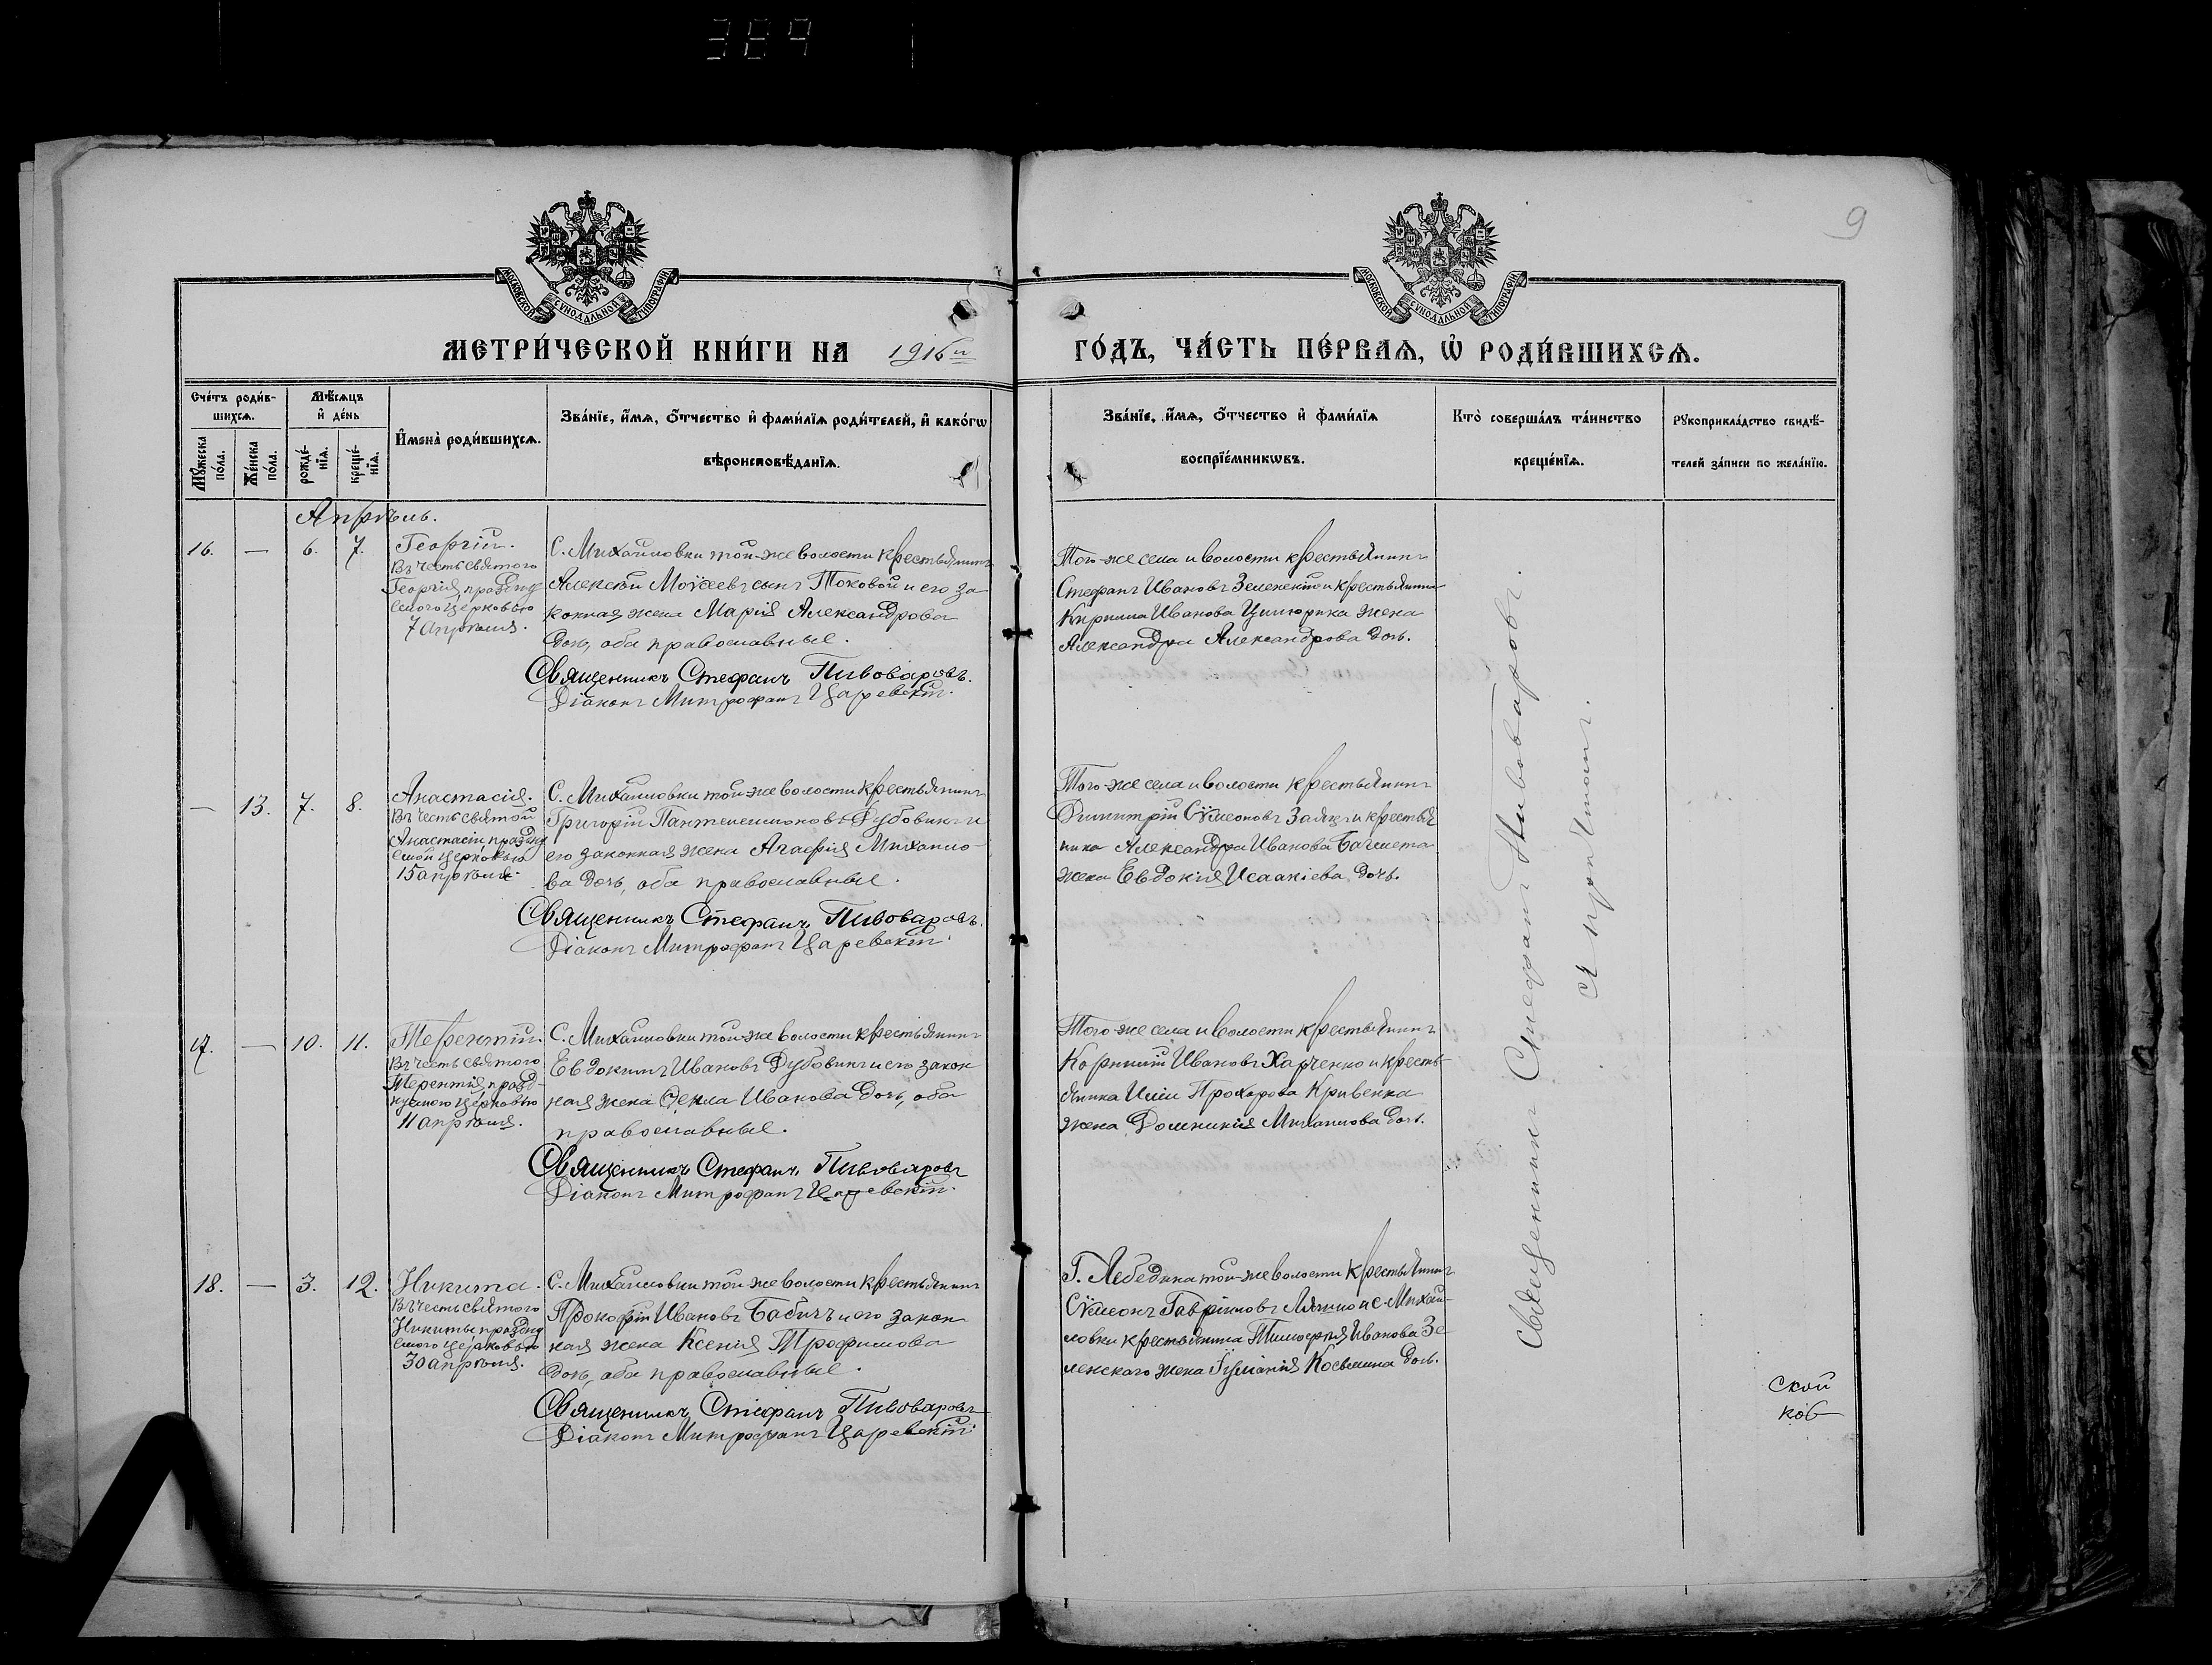 384
9
МОСКОВСКОЙ СУНОДАЛЬНОЙ ТИПОГРАФІИ
МОСКОВСКОЙ СУНОДАЛЬНОЙ ТИПОГРАФІИ
МЕТРИ́ЧЕСКОЙ КНИ́ГИ НА 1916й
ГО́ДЪ, ЧА́СТЬ ПЕ́РВАѦ, Ѡ҆ РОДИ́ВШИХСѦ.
Сче́тъ роди́в-
шихсѧ.
Мꙋ́жеска
по́ла.
Же́нска
по́ла.
Мѣ́сѧцъ
и҆ де́нь
рожде́-
нїѧ.
креще́-
нїѧ.
И҆мена̀ роди́вшихсѧ.
Зва́нїе, и҆́мѧ, ѻ҆́тчество и҆ фами́лїѧ роди́телей, и҆ како́гѡ
вѣроисповѣ́данїѧ.
Зва́нїе, и҆́мѧ, ѻ҆́тчество и҆ фами́лїѧ
воспрїе́мникѡвъ.
Кто̀ соверша́лъ та́инство
креще́нїѧ.
Рꙋкоприкла́дство свидѣ́-
телей за́писи по жела́нїю.
Апрѣль.
16. — 6. 7.
Георгій.
Въ честь святого
Георгія, празднуе
емого церковью
7 апрѣля.
С. Михайловки той-же волости крестьянинъ
Алексѣй Моѵсеевъ сынъ Токовой и его за
конная жена Марія Александрова
дочь, оба православные.
Священникъ Стефанъ Пивоваровъ.
Діаконъ Митрофанъ Царевскій.
Того-же села и волости крестьянинъ
Стефанъ Ивановъ Зеленскій и крестьянина
Кирилла Иванова Цилюрика жена
Александра Александрова дочь.
— 13. 7. 8.
Анастасія.
Въ честь святой
Анастасіи, праздну
емой церковью
15 апрѣля.
С. Михайловки той же волости крестьянинъ
Григорій Пантелеимоновъ Дубовикъ и
его законная жена Агафія Михаило-
ва дочь, оба православные.
Священникъ Стефанъ Пивоваровъ.
Діаконъ Митрофанъ Царевскій.
Того-же села и волости крестьянинъ
Димитрій Сѵмеоновъ Заяцъ и крестья
нина Александра Иванова Баглета
жена Евдокія Исаакіева дочь.
17. — 10. 11.
Терентій.
Въ честь святого
Терентія, празд-
нуемого церковью
11 апрѣля.
С. Михайловки той-же волости крестьянинъ
Евдокимъ Ивановъ Дубовикъ и его закон
ная жена Ѳекла Иванова дочь, оба
православные.
Священникъ Стефанъ Пивоваровъ
Діаконъ Митрофанъ Царевскій.
Того же села и волости крестьянинъ
Корнилій Ивановъ Харченко и кресть-
янина Иліи Прохорова Кривенка
жена Домникія Михаилова дочь.
18. — 3. 12.
Никита.
Въ честь святого
Никиты, праздну
емого церковью
30 апрѣля.
С. Михайловки той-же волости крестьянинъ
Прокофій Ивановъ Бабичъ и его закон
ная жена Ксенія Трофимова
дочь, оба православные.
Священникъ Стефанъ Пивоваровъ
Діаконъ Митрофанъ Царевскій.
Г. Лебедина той-же волости крестьянинъ
Сѵмеонъ Гавріиловъ и с. Михай-
ловки крестьянина Тимофея Иванова Зе
ленскаго жена Іуліанія Косьмина дочь.
Священникъ Стефанъ Пивоваровъ.
съ причтомъ.
ской
ков